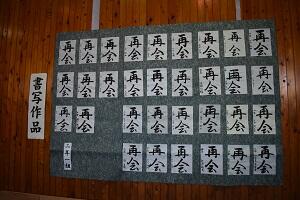 書写作品
再会 再会 再会 再会 再会 再会 再会 再会 再会
再会 再会 再会 再会 再会 再会 再会 再会 再会
再会 再会 再会 再会 再会 再会 再会 再会
再会 再会 再会 再会 再会 再会
二年一組